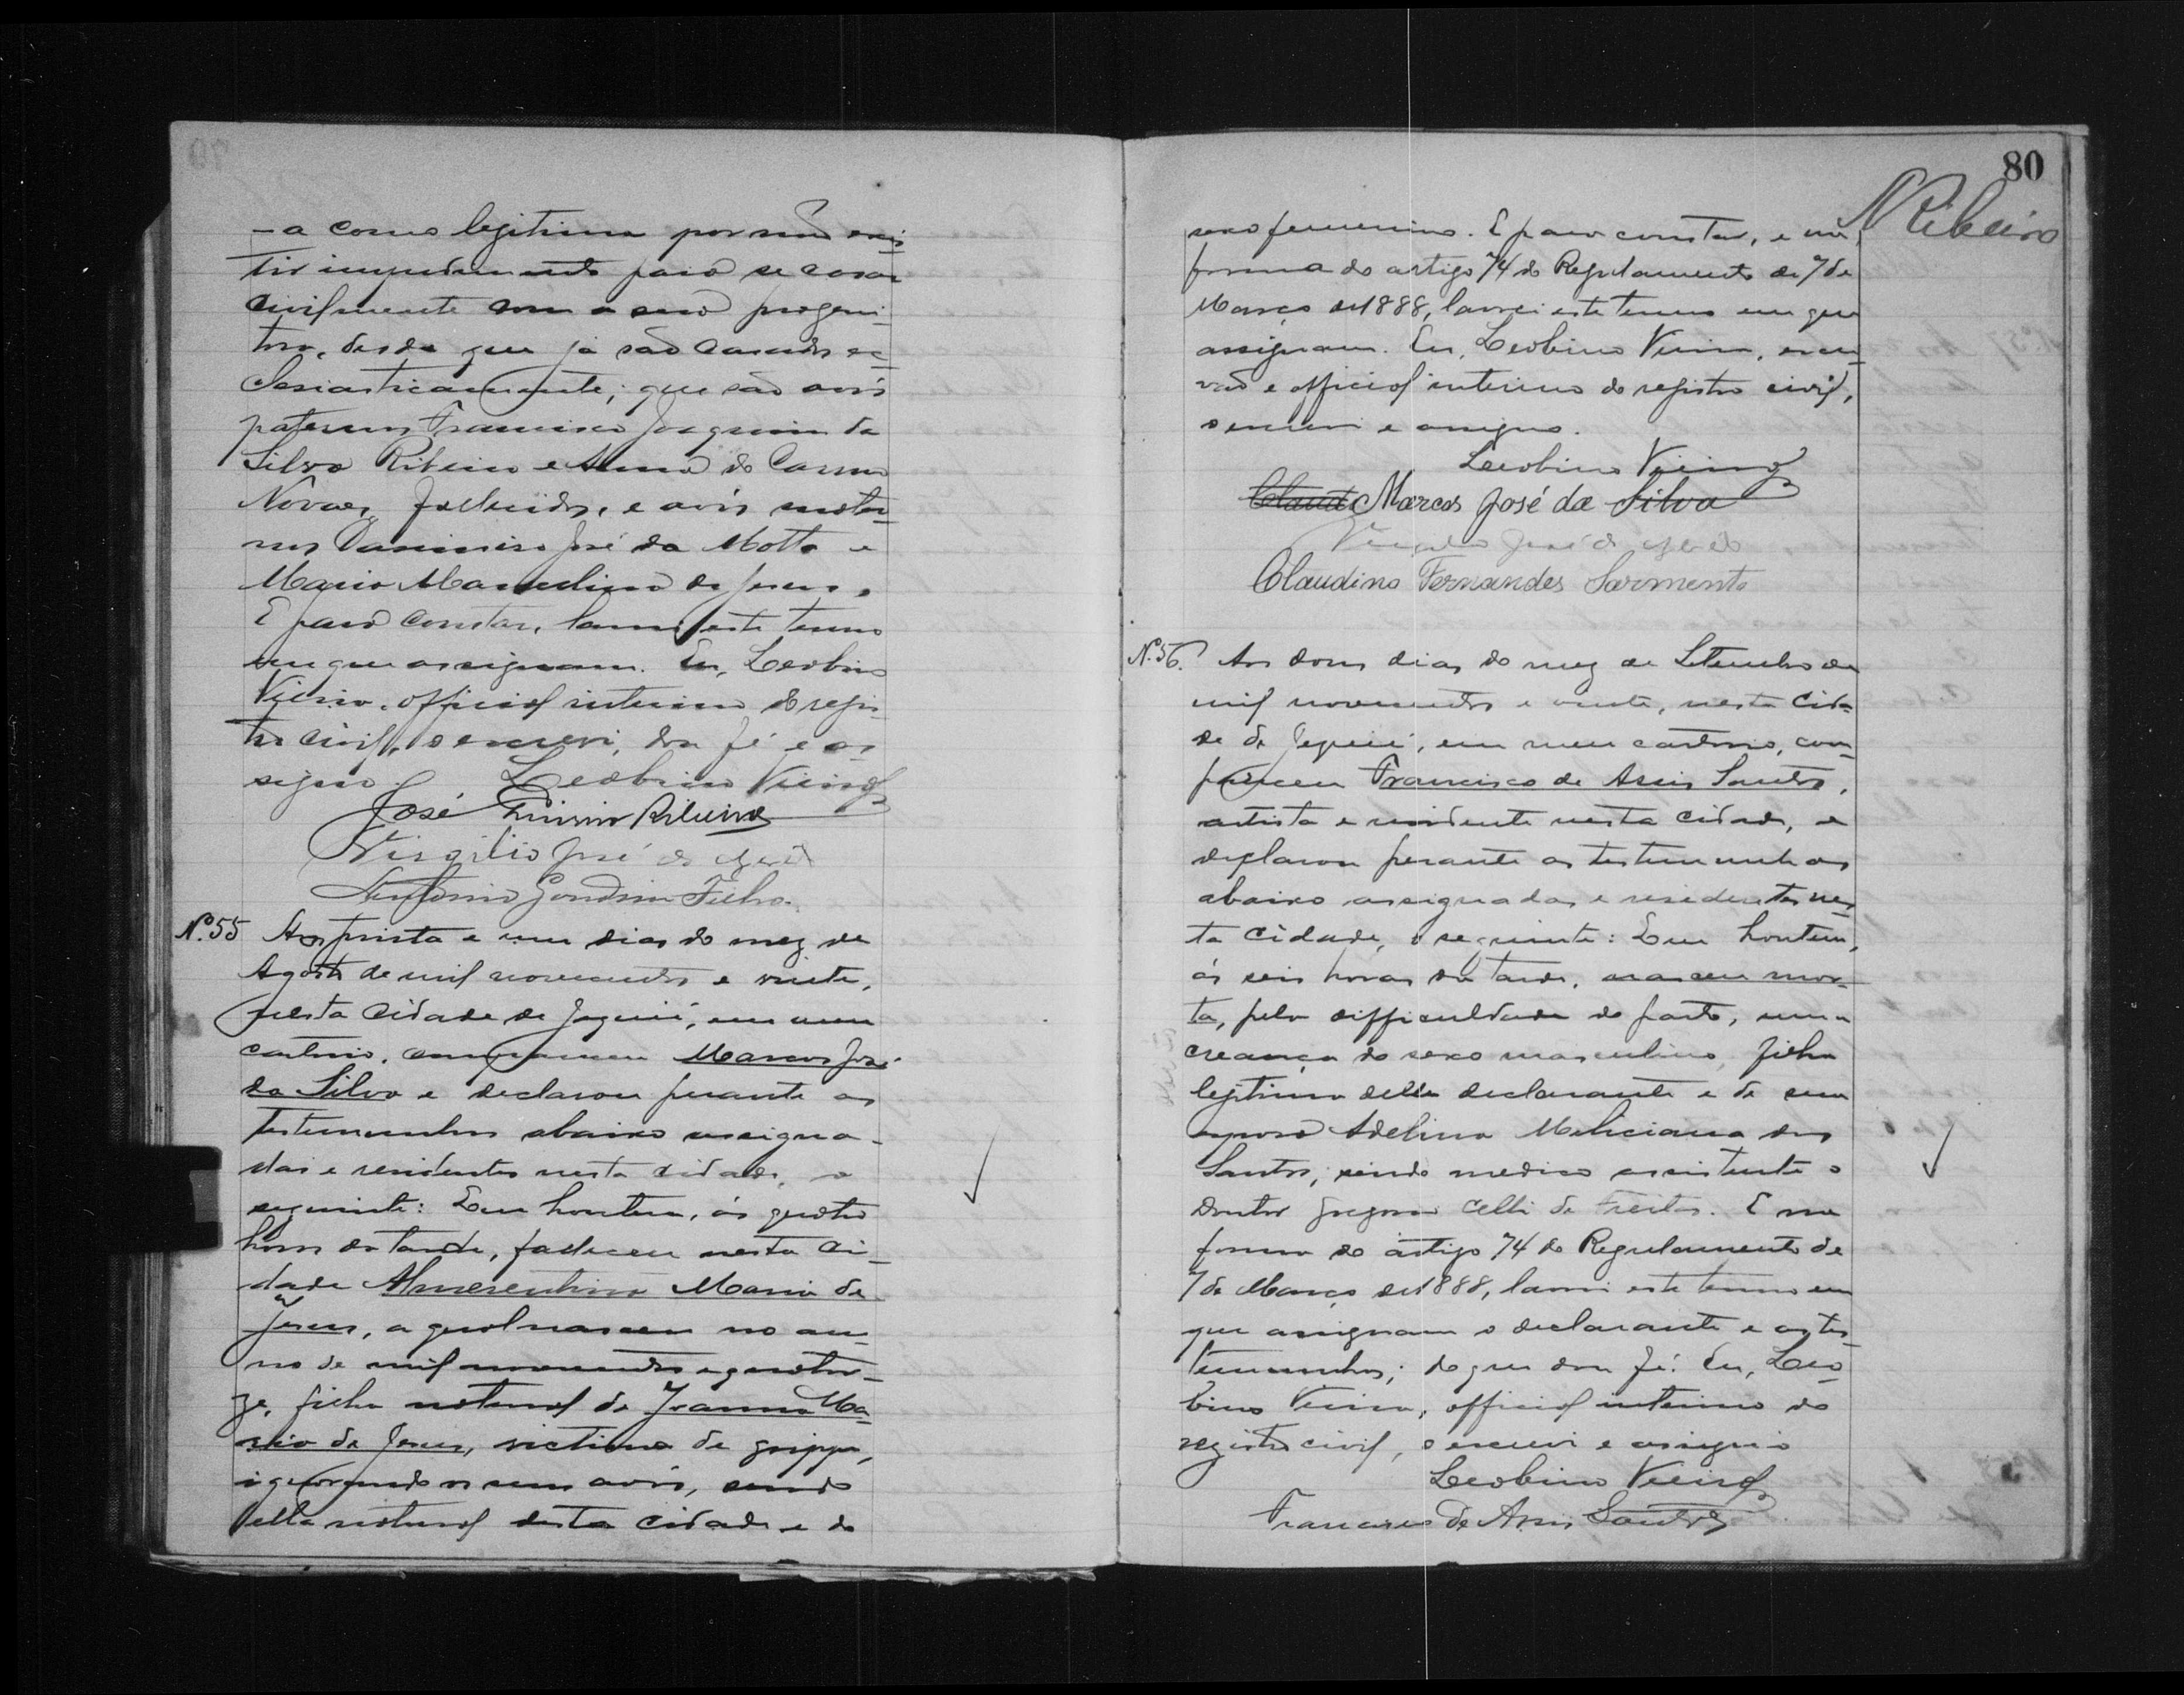 80
N Ribeiro
- a como legitima por não exis
tir impedimento para se casar
civilmente com a sua progeni-
tora, desde que já são casados ec-
clesiasticamente; que são avós
paternos Francisco Joaquim da
Silva Ribeiro e Anna do Carmo
Novaes, fallecidos, e avós mater-
nos José da Motta e
Maria Marcelina de Jesus.
E para constar, lavrei este termo
em que assignam. Eu, Leobino
Vieira, official interino do regis-
tro civil, o escrevi, dou fé e as-
signo. Leobino Vieira
José Ribeiro
Virgilio José de
Antonio Gondim Filho.
Nº 55 Aos trinta e um dias do mez de
Agosto de mil novecentos e vinte,
nesta cidade de Jequié, em meu
cartorio, compareceu Marcos José
da Silva e declarou perante as
testemunhas abaixo assigna-
das e residentes nesta cidade, o
seguinte: Que hontem, ás quatro
horas da tarde, falleceu nesta ci-
dade Almerentina Maria de
Jesus, a qual nasceu no an-
no de mil novecentos e quator-
ze, filha natural de Joanna Ma-
ria de Jesus, victima de grippe,
ignorando os seus avós, sendo
ella natural desta cidade e do
sexo femenino. E para constar, e na
forma do artigo 74 do Regulamento de 7 de
Março de 1888, lavrei este termo em que
assignam. Eu, Leobino Vieira, escri-
vão e official interino do registro civil,
o escrevi e assigno.
Leobino Vieira
Claud Marcos José da Silva
José de
Claudino Fernandes Sarmento
Nº 56. Aos dous dias do mez de Setembro de
mil novecentos e vinte, nesta cida-
de de Jequié, em meu cartorio, com-
pareceu Francisco de Assis Santos,
artista e residente nesta cidade, e
declarou perante as testemunhas
abaixo assignadas e residentes nes-
ta cidade, o seguinte: Que hontem,
ás seis horas da tarde, nasceu mor-
ta, pela difficuldade do parto, uma
creança do sexo masculino, filha
legitima delle declarante e de sua
esposa Adelina Meliciana dos
Santos, sendo medico assistente o
doutor Celli de Freitas. E na
forma do artigo 74 do Regulamento de
7 de Março de 1888, lavrei este termo em
que assignam o declarante e as tes-
temunhas; do que dou fé. Eu, Leo-
bino Vieira, official interino do
registro civil, o escrevi e assigno
Leobino Vieira
Francisco de Assis Santos